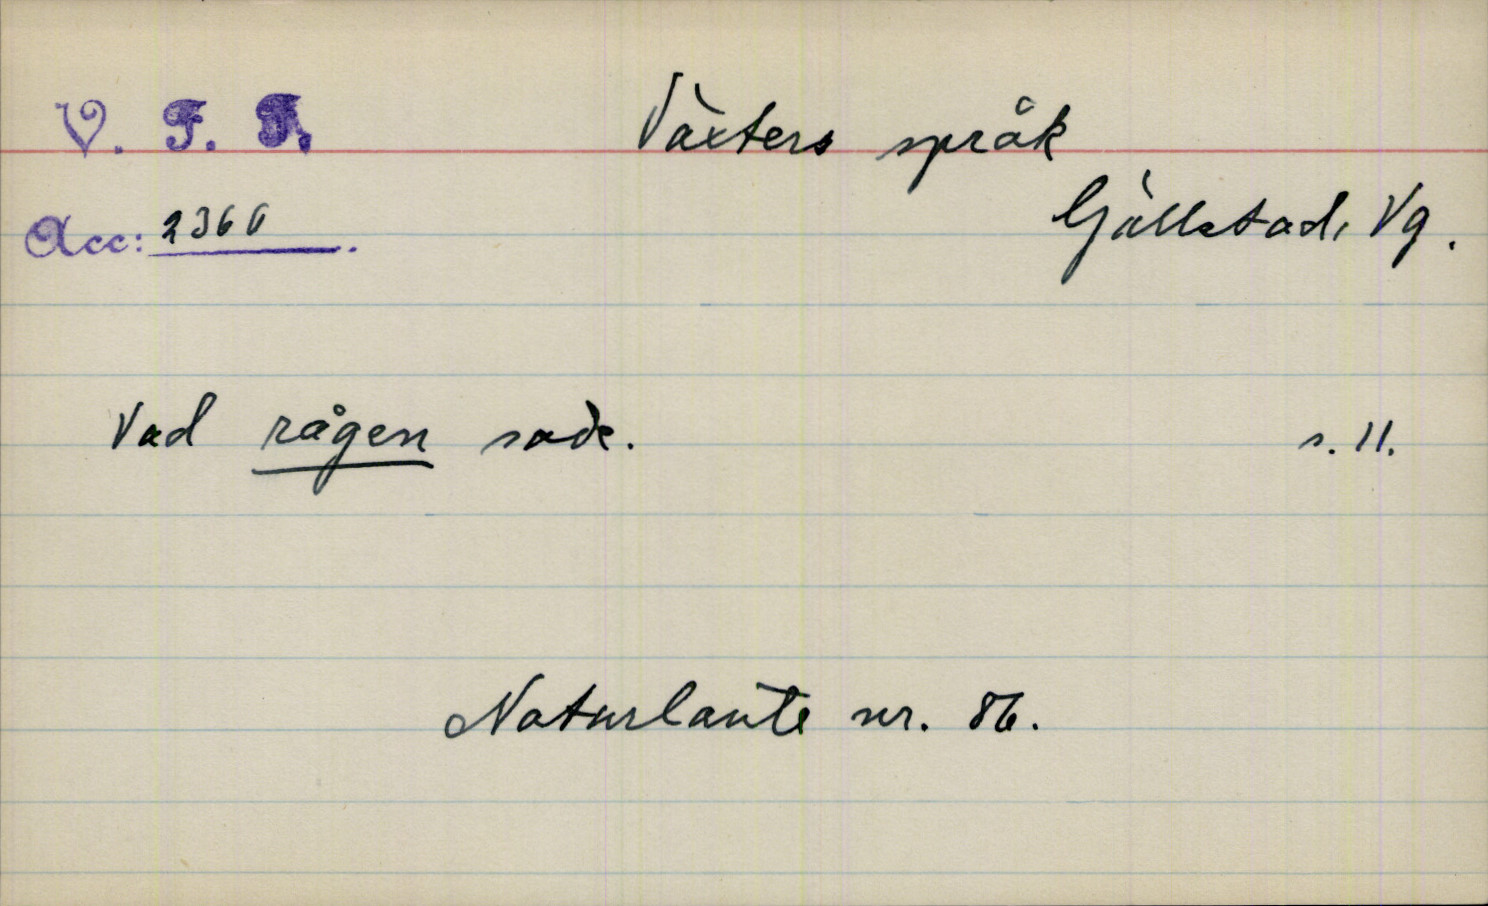 V. F. F.
Växters språk
Acc: 2360.
Gällstad, Vg.
Vad rågen sade. s. 11.
Naturlaute nr. 86.